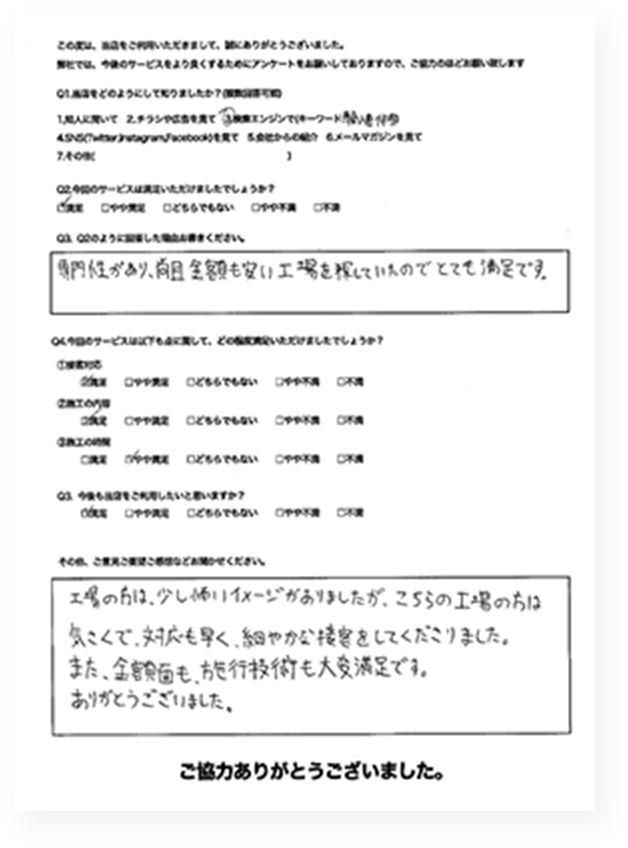 この度は、当店をご利用いただきまして、誠にありがとうございました。
弊社では、今後のサービスをより良くするためにアンケートをお願いしておりますので、ご協力のほどお願い致します
Q1.当店をどのようにして知りましたか?(複数回答可能)
1.知人に聞いて 2.チラシや広告を見て 3.検索エンジンで(キーワード
4.SNS(Twitter,Instagram,Facebook)を見て 5.会社からの紹介 6.メールマガジンを見て
7.その他( )
Q2.今回のサービスは満足いただけましたでしょうか?
☑満足 □やや満足 □どちらでもない □やや不満 □不満
Q3. Q2のように回答した理由お書きください。
専門性があり、尚且金額も安い工場を探していたのでとても満足です。
Q4.今回のサービスは以下も点に関して、どの程度満足いただけましたでしょうか?
①接客対応
☑満足 □やや満足 □どちらでもない □やや不満 □不満
②施工の内容
☑満足 □やや満足 □どちらでもない □やや不満 □不満
③施工の時間
□満足 ☑やや満足 □どちらでもない □やや不満 □不満
Q3. 今後も当店をご利用したいと思いますか?
☑満足 □やや満足 □どちらでもない □やや不満 □不満
その他、ご意見ご要望ご感想などお聞かせください。
工場の方は、少し怖いイメージがありましたが、こちらの工場の方は
気さくで、対応も早く、細やかな接客をしてくださりました。
また、金額面も、施行技術も大変満足です。
ありがとうございました。
ご協力ありがとうございました。